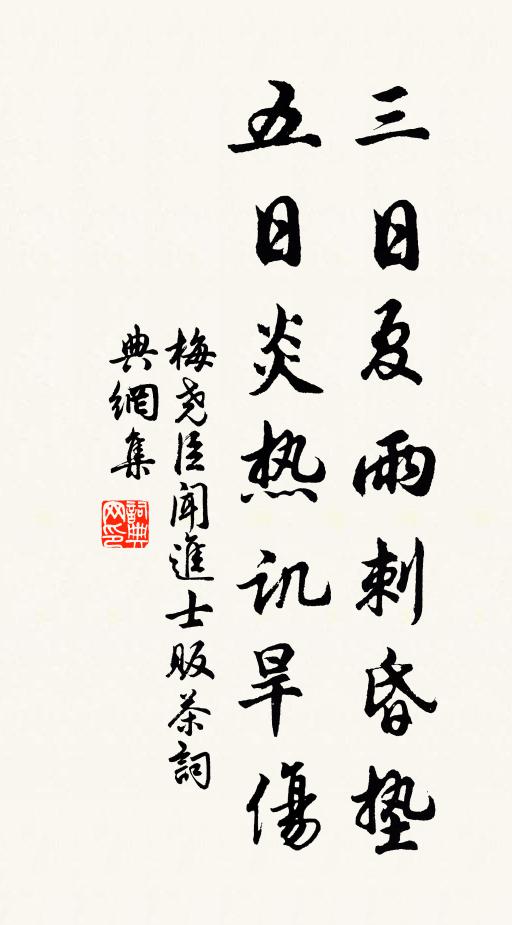 三日夏雨刺昏垫
五日炎热讥旱傷
梅尧臣闻進士贩茶詞
典網集
詞典
网印